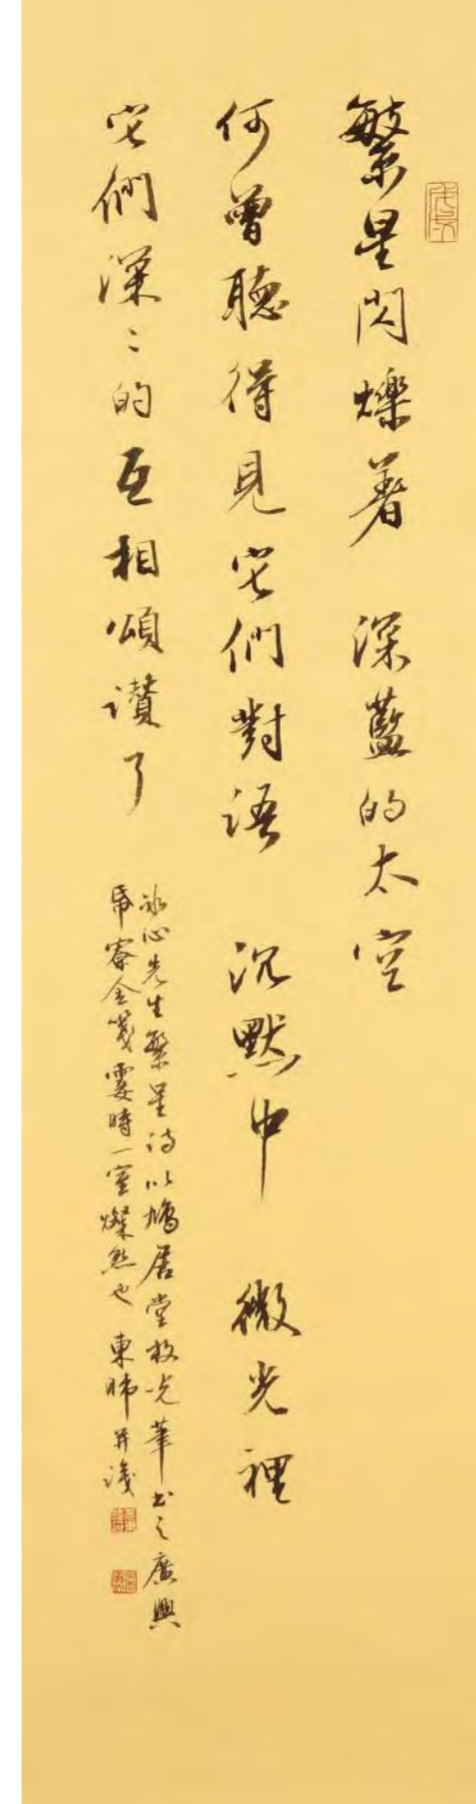 繁星閃爍著 深藍的太空
何曾聽得見它們對語 沉默中 微光裡
它們深〻的互相頌讚了
冰心先生繁星詩以鳩居堂放光筆書之廣興
帋寮金箋霎時一室燦然也 東 并識